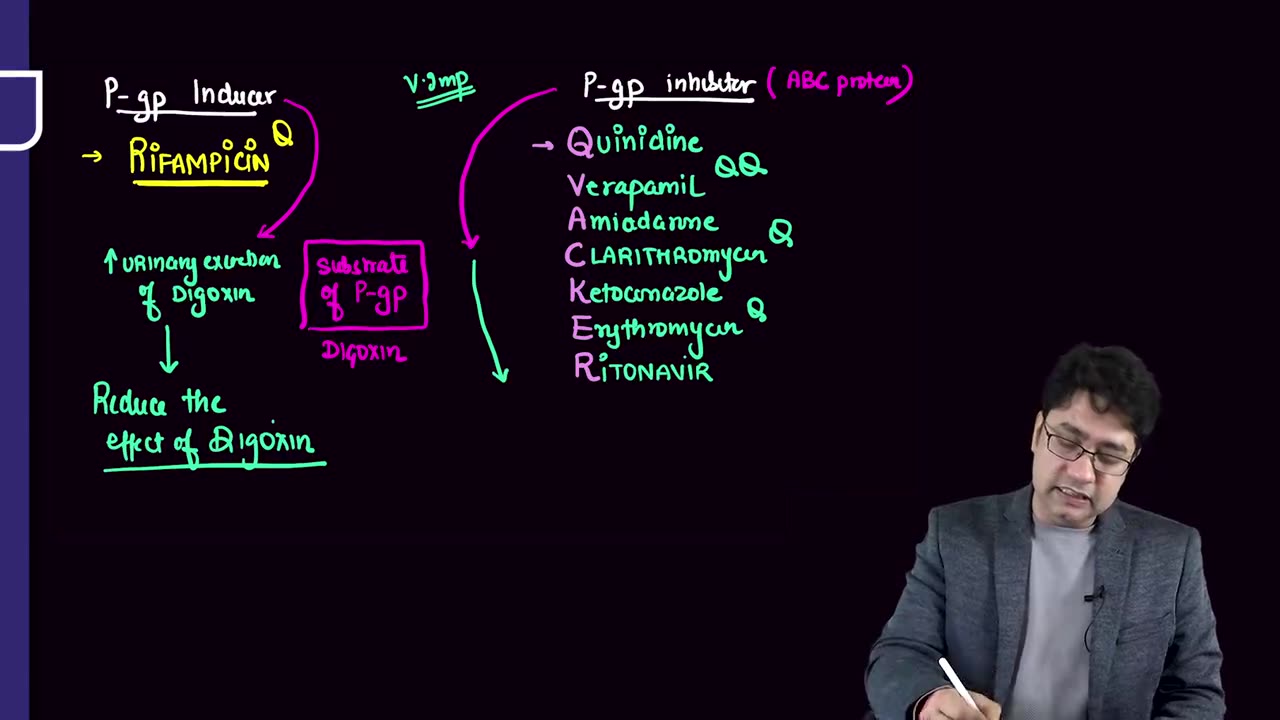 P-gp Inducer
→ RIFAMPICIN Q
↑ URINARY excretion
of DIGOXIN
Reduce the
effect of DIGOXIN
V.Imp
Substrate
of P-gp
DIGOXIN
P-gp inhibitor (ABC protein)
→ Quinidine
VerapamiL QQ
Amiodarone
CLARITHROmycin Q
Ketoconazole
Erythromycin Q
RITONAVIR